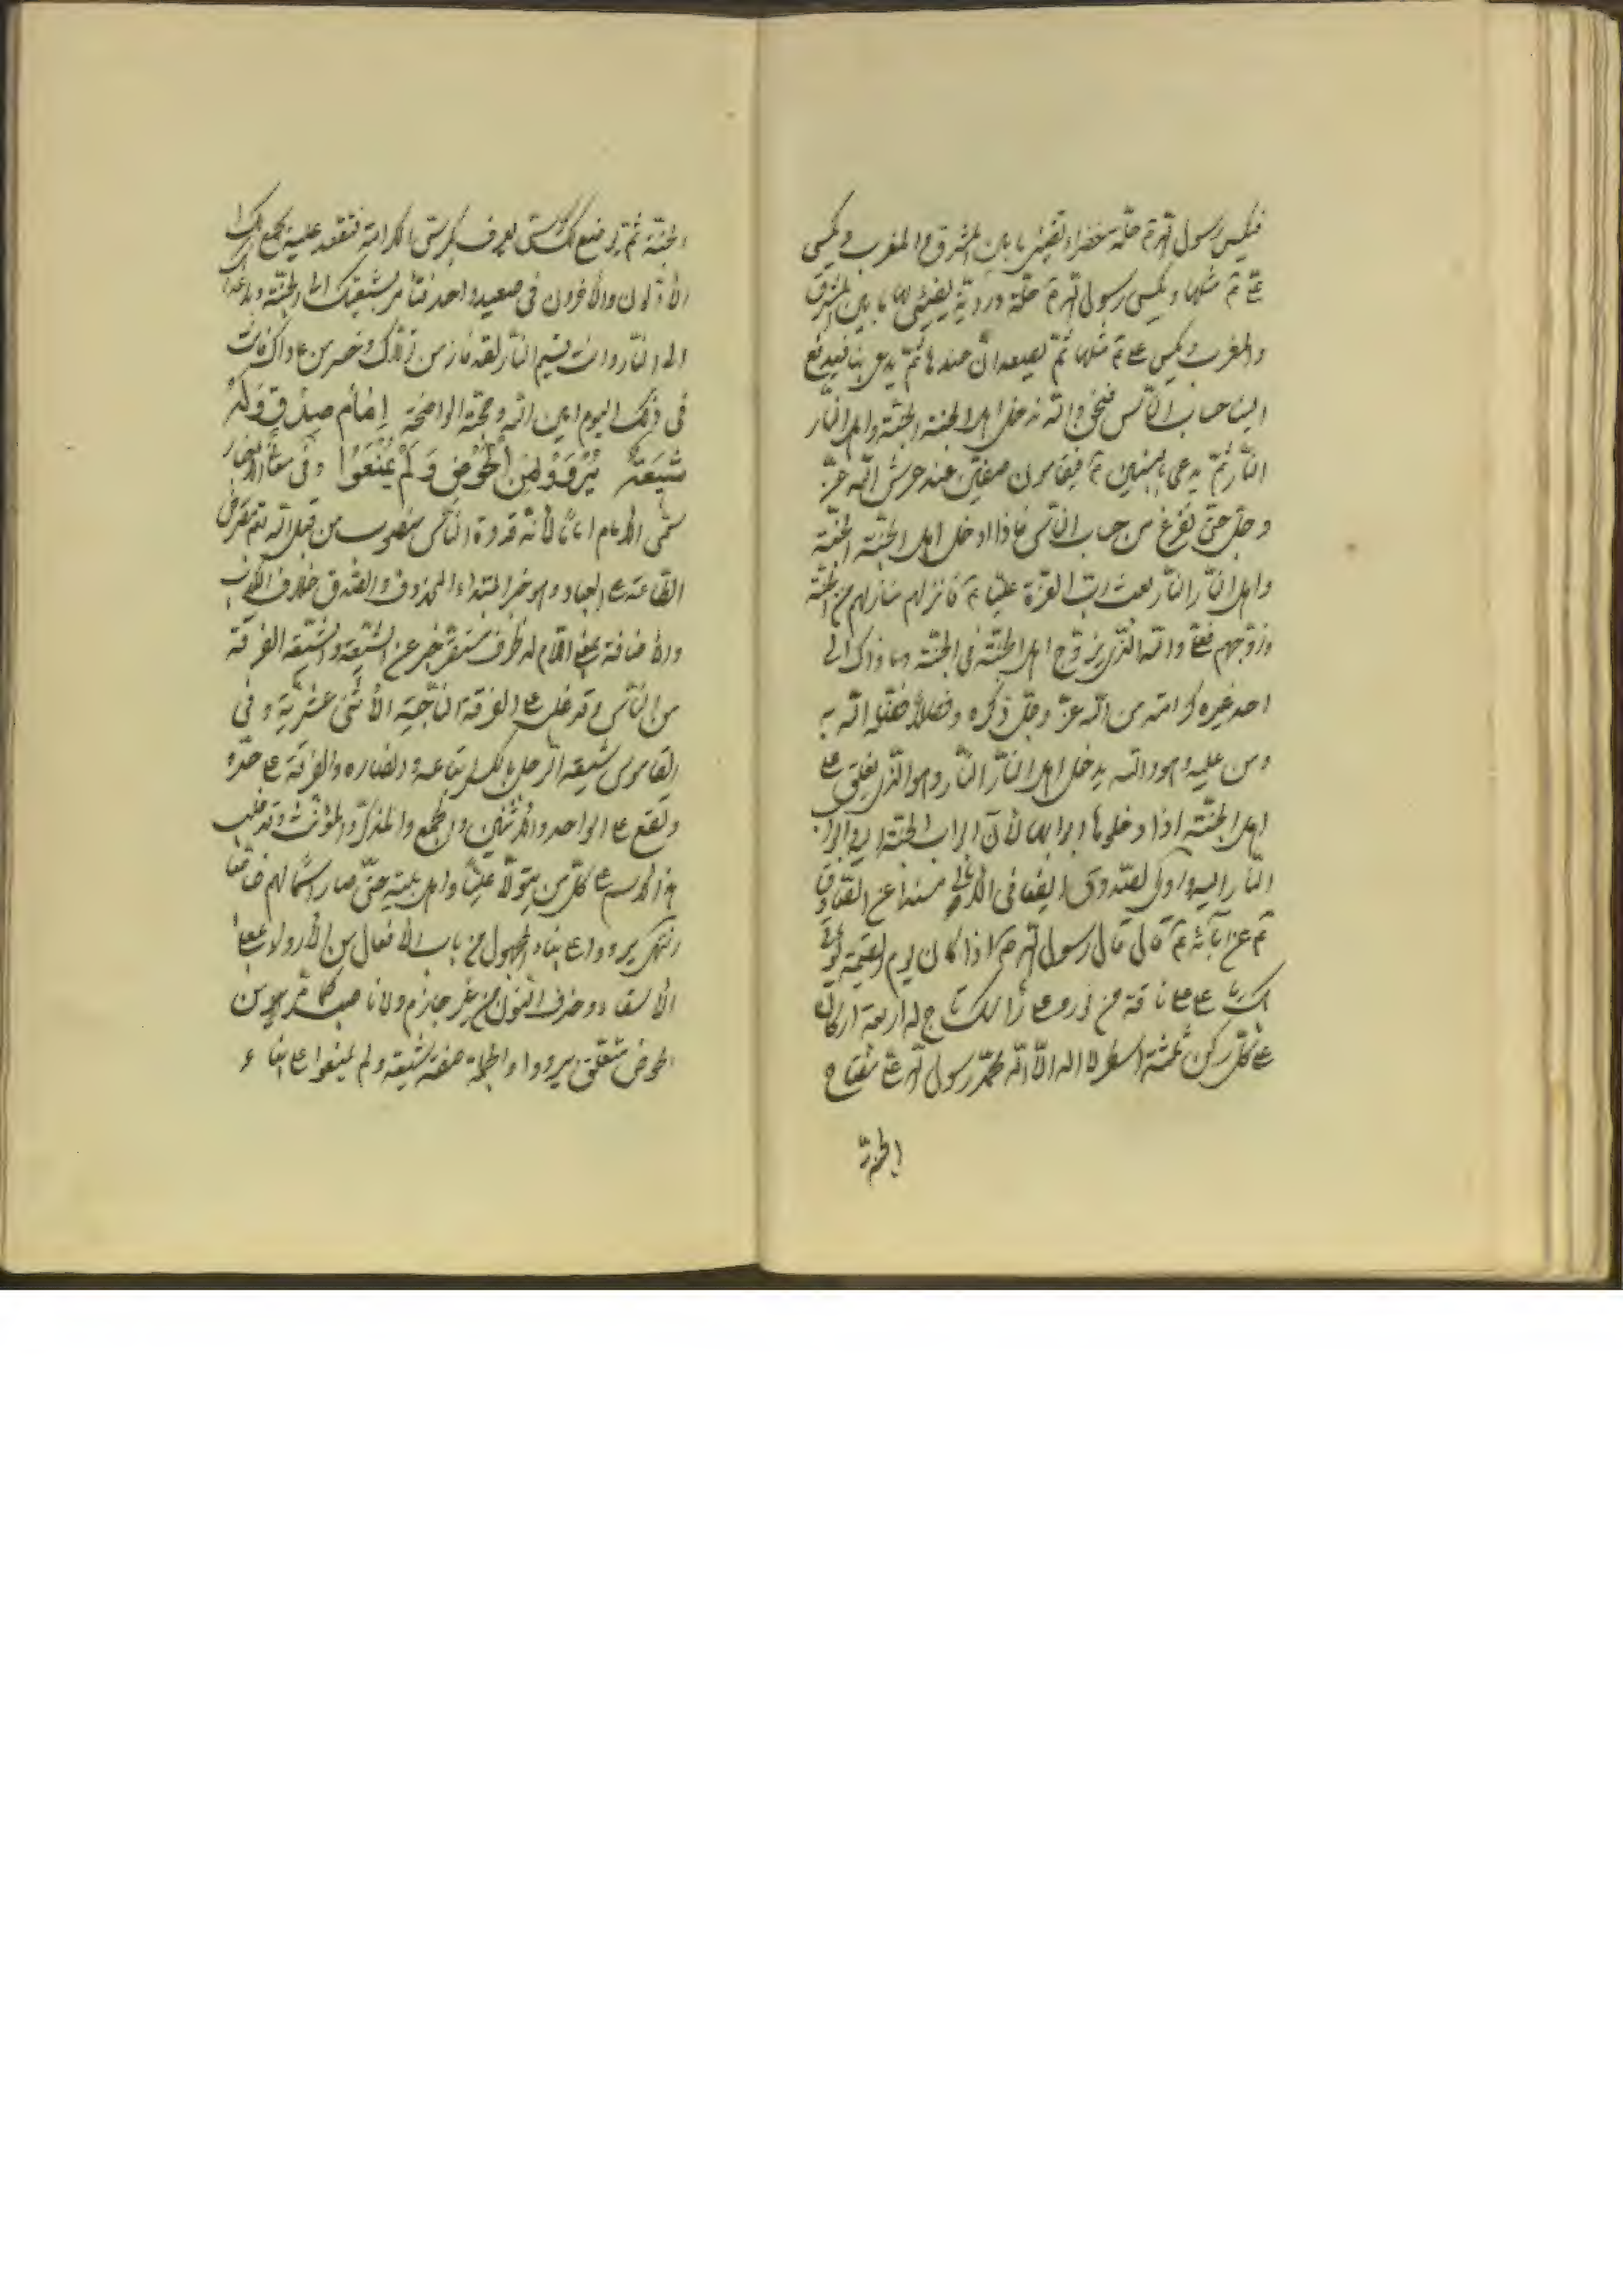 فيكسى رسول الله ص حلّة خضراء تضيئ ما بين المشرق والمغرب ويكسى
على ع مثلها ويكسى رسول الله ص حلّة ورديّة يضيئ لها ما بين المشرق
والمغرب ويكسى على ع مثلها ثمّ يصعدان عندها ثمّ يدعى بنا فيدفع
الينا حساب النّاس فنحن والله ندخل اهل الجنة الجنّة واهل النّار
النّار ثمّ يدعى بالنبيين ع فيقامون صفين عند عرش الله عزّ
وجلّ حتّى نفرغ من حساب النّاس فاذا ادخل اهل الجنّة الجنّة
واهل النّار النّار بعث ربّ العزّة عليّا ع فانزلهم منازلهم من الجنّة
وزوّجهم فعلى والله الّذى يزوّج اهل الجنّة فى الجنّة وما ذاك الى
احد غيره كرامة من الله عزّ وجلّ ذكره وفضلاً فضّله الله به
ومن عليه وهو والله يدخل اهل النّار النّار وهو الّذى يغلق على
اهل الجنّة اذا دخلوها ابوابها لأنّ ابواب الجنّة اليه وابواب
النّار اليه وروى الصّدوق ايضا فى الأمالى مسندا عن الصّادق
ع عن آبائه ع قال قال رسول الله ص اذا كان يوم القيمة يؤتى
بك يا على على ناقة من نور وعلى رأسك تاج له اربعة اركان
على كلّ ركن ثلثة اسطر لا اله الّا الله محمّد رسول الله على مفتاح
الجنّة
الجنّة ثمّ يوضع لك كرسى يعرف بكرسى الكرامة فتقعد عليه يجمع لك
الأوّلون والأخرون فى صعيد واحد فتأمر بشيعتك الى الجنّة وباعدائك
الى النّار وانت قسيم النّار لقد فاز من تولّاك وخسر من عاداك فانت
فى ذلك اليوم امين الله وحجّة الواضحة إِمَامُ صِدْقٍ وَلَهُ
شِيعَتُهُ يُرْوَوْا مِنَ الْحَوْضِ وَلَمْ يُمْنَعُوا وفى معانى الأخبار
سمّى الأمام اماما لأنّه قدوة النّاس منصوب من قبل الله تعم مفترض
الطّاعة على العباد وهو خبر المبتداء المحذوف والصّدق خلاف الكذب
والأضافة بمعنى اللّام له ظرف مستقر خبر عن الشّيعة والشّيعة الفرقة
من النّاس وقد غلب على الفرقة النّاجية الأثنى عشريّة وفى
القاموس شيعة الرّجل بالكسر اتباعه وانصاره والفرقة على حدة
وتقع على الواحد والأثنين والجمع والمذكّر والمؤنّث وقد غلب
هذا الأسم على كلّ من يتولّا عليّا واهل بيته حتّى صار اسما لهم خاصّا
انتهى يرووا على بناء المجهول من باب الأفعال من الأرواء بمعنى
الأسقاء وحذف النّون من غير جازم ولا ناصب كما مرّ من
الحوض متعلّق بيرووا والجملة صفة لشيعة ولم يمنعوا على بناء